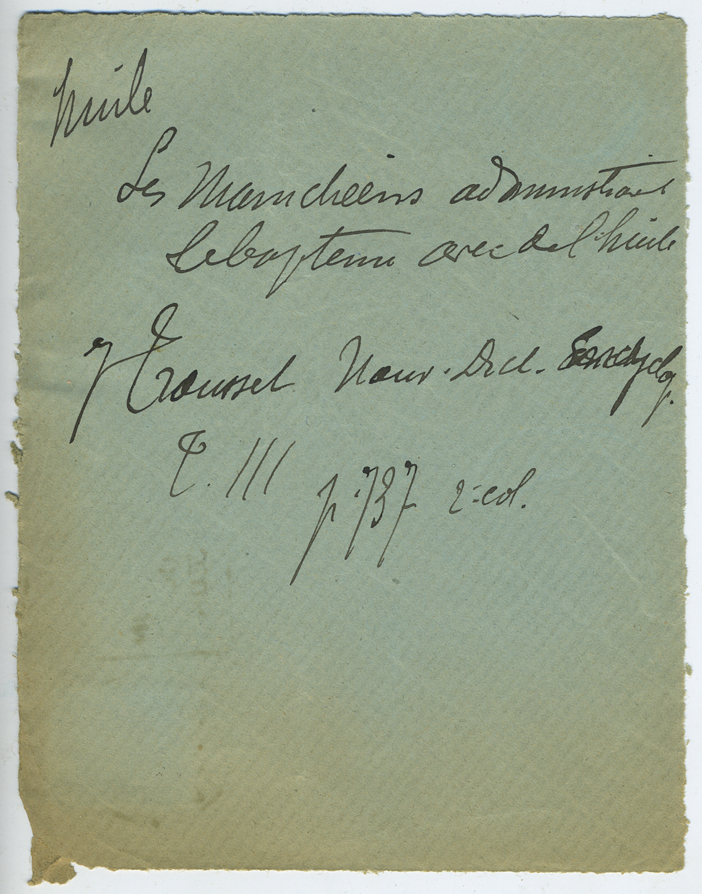 huile
Les Manichéens administraient
le baptème avec de l'huile
J Trousset Nouv. Dict. Encyclop.
T. III p. 737 2e col.